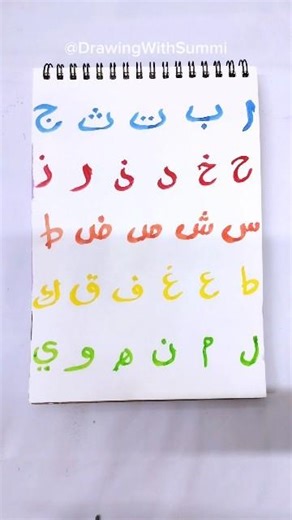 @DrawingWithSummi
ا ب ت ث ج
ح خ د ذ ر ز
س ش ص ض ط
ط ع غ ف ق ك
ل م ن ه و ي